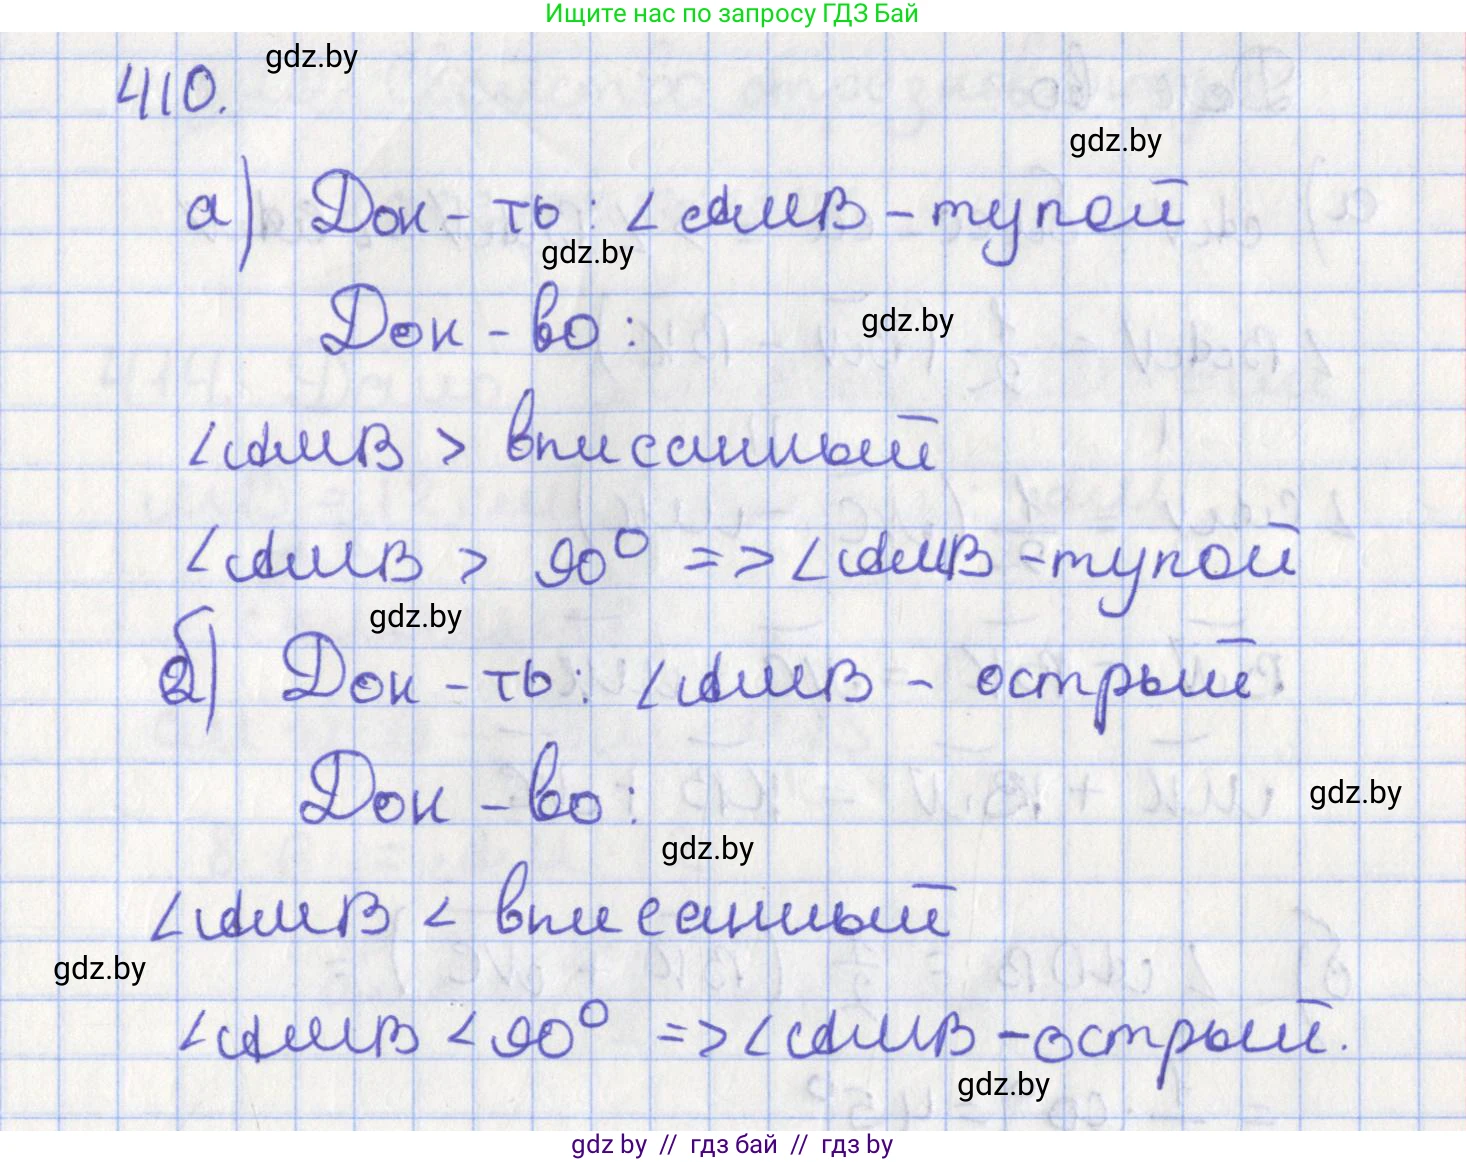 Ищите нас по запросу ГДЗ Бай
gdz.by
410.
gdz.by
а) Док-ть: ∠AMB - тупой
gdz.by
Док-во:
gdz.by
∠AMB > вписанный
∠AMB > 90° => ∠AMB - тупой
gdz.by
б) Док-ть: ∠AMB - острый.
Док-во:
gdz.by
gdz.by
∠AMB < вписанный
gdz.by
∠AMB < 90° => ∠AMB - острый.
gdz.by
gdz by // гдз бай // гдз by